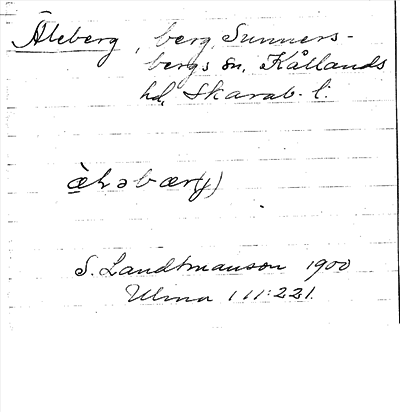 Äleberg, berg, Sunners-
bergs sn, Kållands
hd, Skarab. l.
S. Landtmanson 1900
Ulma 111:221.